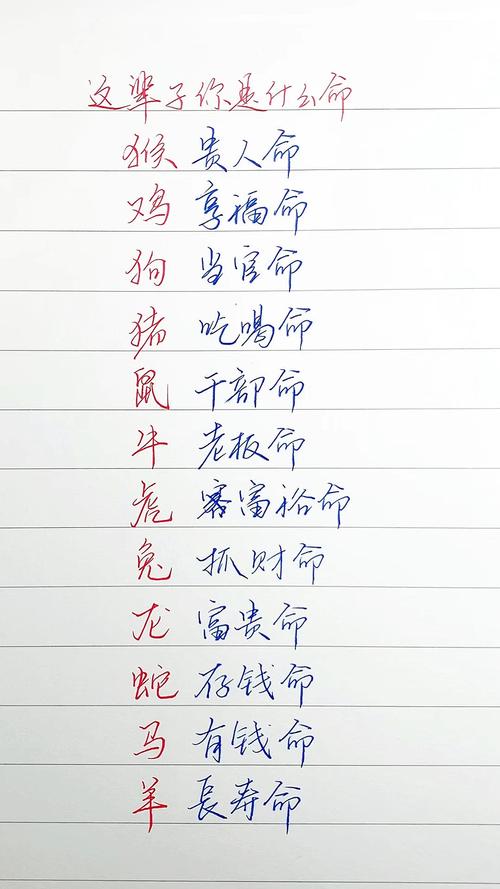 这辈子你是什么命
猴 贵人命
鸡 享福命
狗 当官命
猪 吃喝命
鼠 干部命
牛 老板命
虎 富裕命
兔 抓财命
龙 富贵命
蛇 存钱命
马 有钱命
羊 長寿命